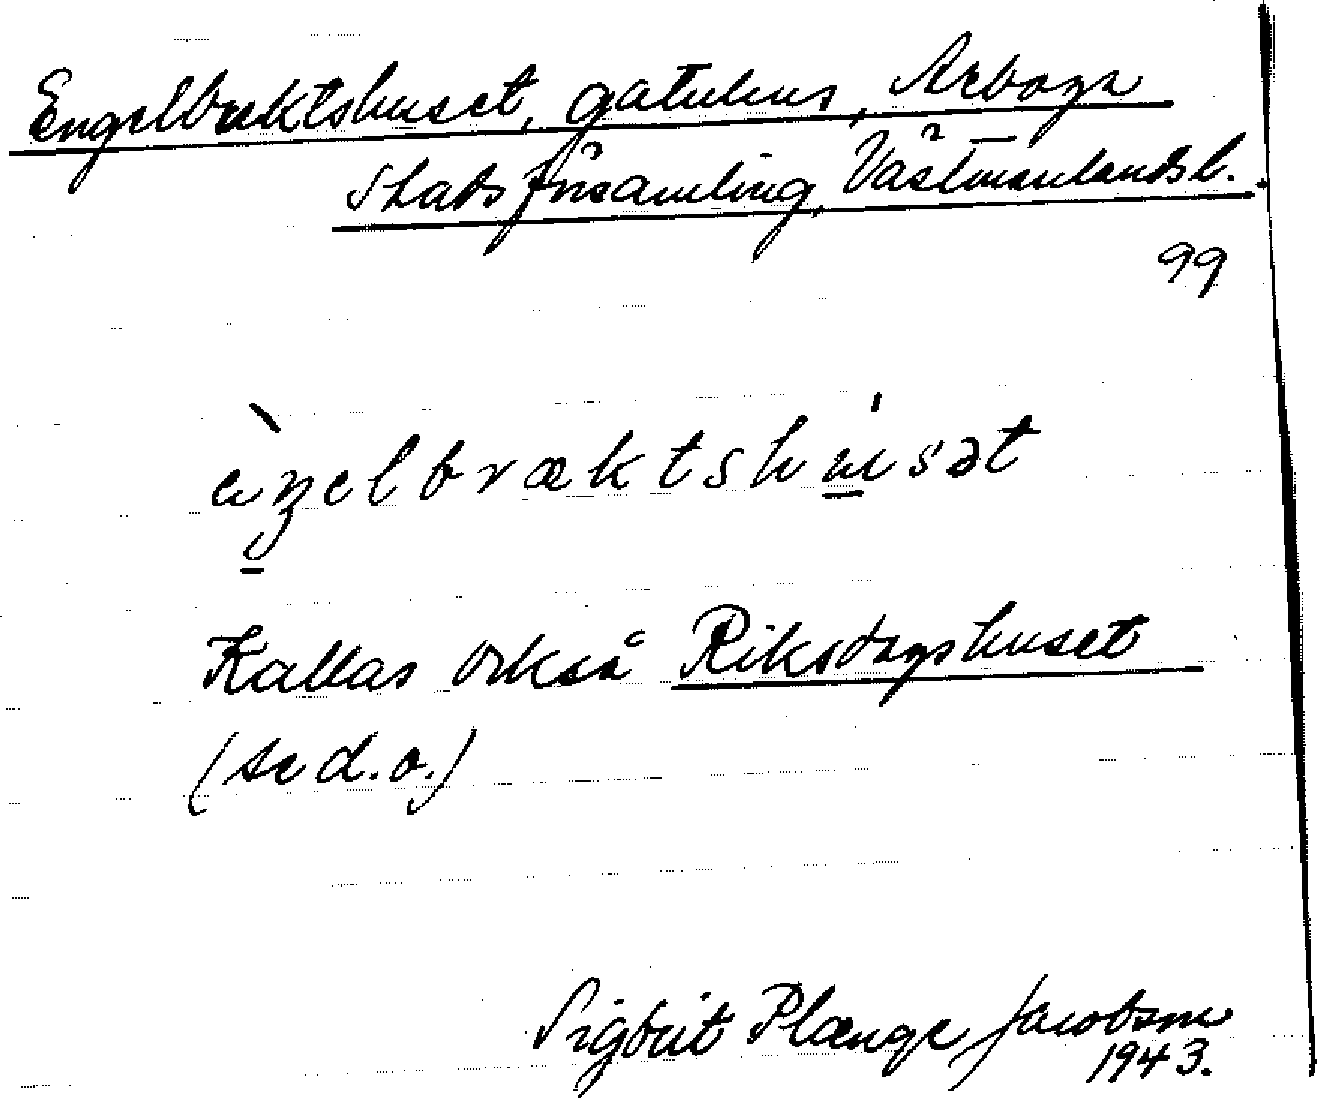 Engelbrektshuset, gatuhus, Arboga
Stadsförsamling, Västmanlands l.
99
Kallas också Riksdagshuset
(se d.o.)
Sigbrit Plænge Jacobson
1943.